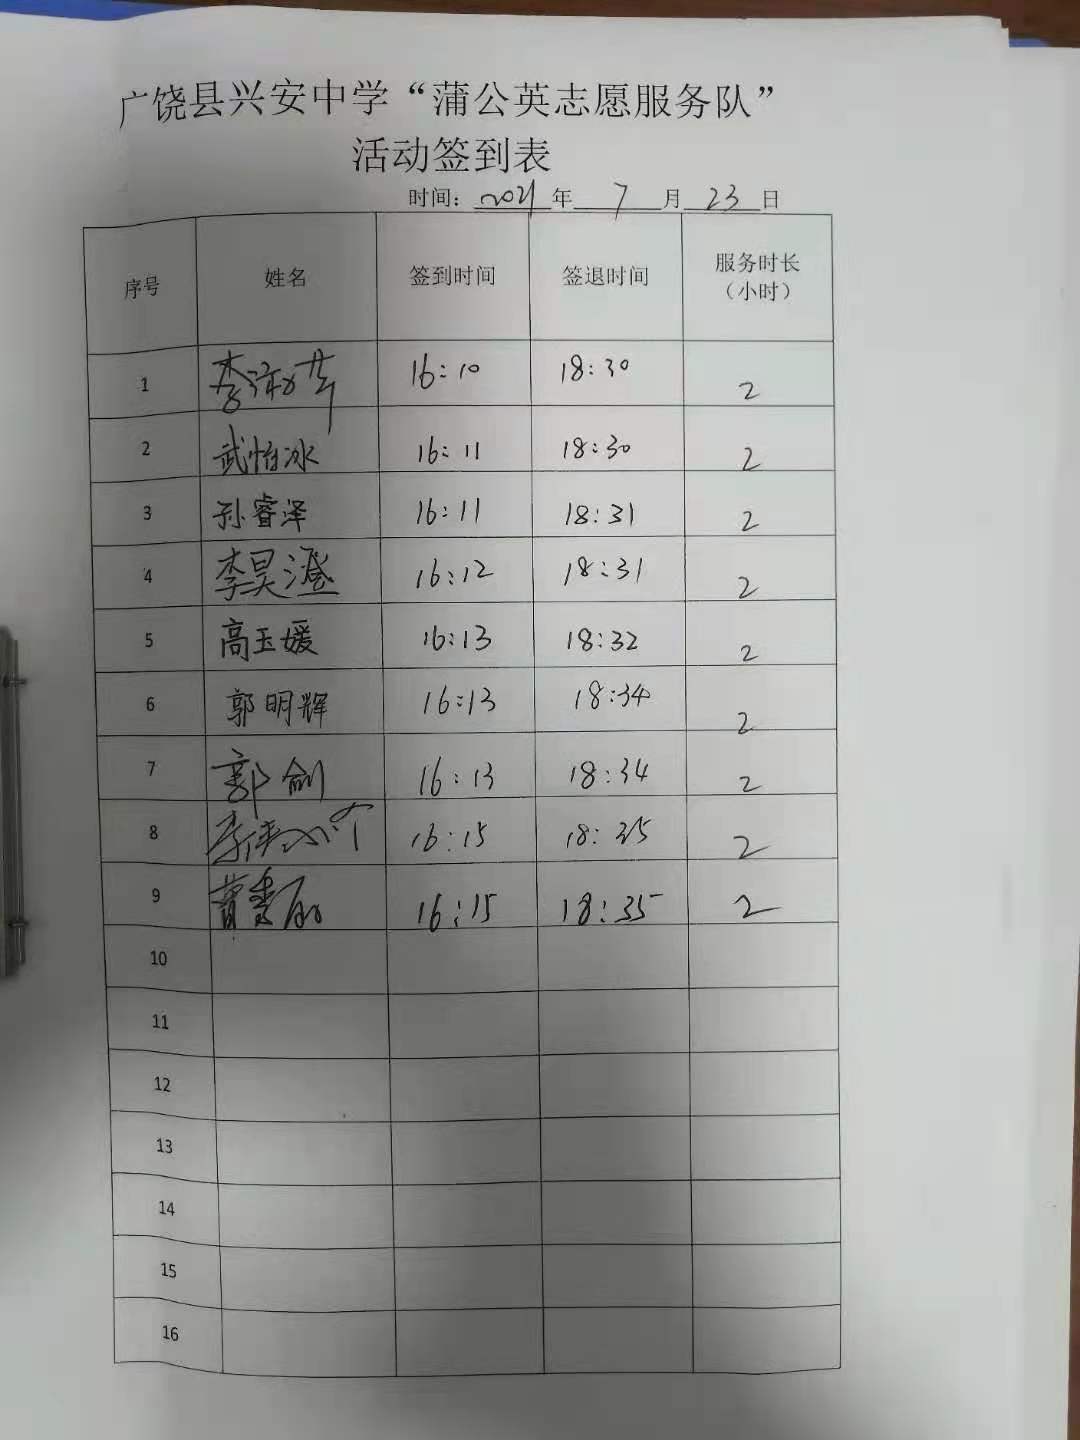 广饶县兴安中学“蒲公英志愿服务队”
活动签到表
时间：2021年 7 月 23 日
序号 姓名 签到时间 签退时间 服务时长（小时）
1 李 16:10 18:30 2
2 武怡冰 16:11 18:30 2
3 孙睿泽 16:11 18:31 2
4 李昊澄 16:12 18:31 2
5 高玉媛 16:13 18:32 2
6 郭明辉 16:13 18:34 2
7 郭剑 16:13 18:34 2
8 李 16:15 18:35 2
9 16:15 18:35 2
10
11
12
13
14
15
16